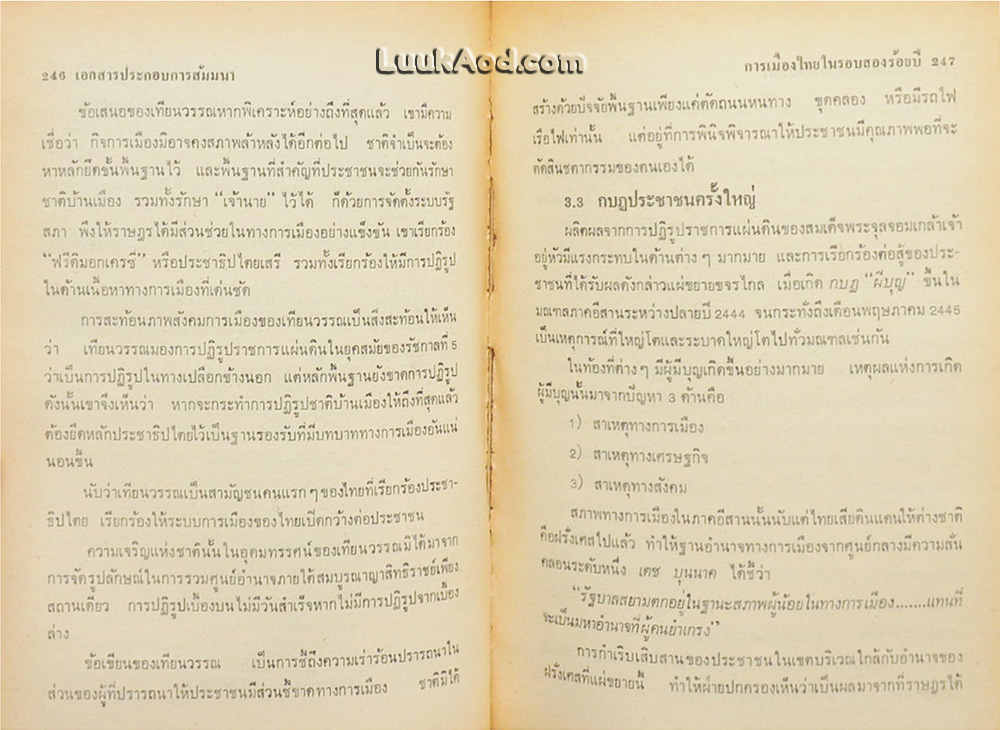 LuukAod.com
246 เอกสารประกอบการสัมมนา
ข้อเสนอของเทียนวรรณหากพิเคราะห์อย่างถึงที่สุดแล้ว เขามีความ
เชื่อว่า กิจการเมืองมิอาจคงสภาพล้าหลังได้อีกต่อไป ชาติจำเป็นจะต้อง
หาหลักยึดขั้นพื้นฐานไว้ และพื้นฐานที่สำคัญที่ประชาชนจะช่วยกันรักษา
ชาติบ้านเมือง รวมทั้งรักษา “เจ้านาย” ไว้ได้ ก็ด้วยการจัดตั้งระบบรัฐ
สภา พึงให้ราษฎรได้มีส่วนช่วยในทางการเมืองอย่างแข็งขัน เขาเรียกร้อง
“ฟรีดิมอกเครซี่” หรือประชาธิปไตยเสรี รวมทั้งเรียกร้องให้มีการปฏิรูป
ในด้านเนื้อหาทางการเมืองที่เด่นชัด
การสะท้อนภาพสังคมการเมืองของเทียนวรรณเป็นสิ่งสะท้อนให้เห็น
ว่า เทียนวรรณมองการปฏิรูปราชการแผ่นดินในยุคสมัยของรัชกาลที่ 5
ว่าเป็นการปฏิรูปในทางเปลือกข้างนอก แต่หลักพื้นฐานยังขาดการปฏิรูป
ดังนั้นเขาจึงเห็นว่า หากจะกระทำการปฏิรูปชาติบ้านเมืองให้ถึงที่สุดแล้ว
ต้องยึดหลักประชาธิปไตยไว้เป็นฐานรองรับที่มีบทบาททางการเมืองอันแน่
นอนขึ้น
นับว่าเทียนวรรณเป็นสามัญชนคนแรก ๆ ของไทยที่เรียกร้องประชา-
ธิปไตย เรียกร้องให้ระบบการเมืองของไทยเปิดกว้างต่อประชาชน
ความเจริญแห่งชาตินั้น ในอุดมทรรศน์ของเทียนวรรณมิได้มาจาก
การจัดรูปลักษณ์ในการรวมศูนย์อำนาจภายใต้สมบูรณาญาสิทธิราชย์เพียง
สถานเดียว การปฏิรูปเบื้องบนไม่มีวันสำเร็จหากไม่มีการปฏิรูปจากเบื้อง
ล่าง
ข้อเขียนของเทียนวรรณ เป็นการชี้ถึงความเร่าร้อนปรารถนาใน
ส่วนของผู้ที่ปรารถนาให้ประชาชนมีส่วนชี้ขาดทางการเมือง ชาติมิได้
การเมืองไทยในรอบสองร้อยปี 247
สร้างด้วยปัจจัยพื้นฐานเพียงแค่ตัดถนนหนทาง ขุดคลอง หรือมีรถไฟ
เรือไฟเท่านั้น แต่อยู่ที่การพินิจพิจารณาให้ประชาชนมีคุณภาพพอที่จะ
ตัดสินชตากรรมของตนเองได้
3.3 กบฏประชาชนครั้งใหญ่
ผลิตผลจากการปฏิรูปราชการแผ่นดินของสมเด็จพระจุลจอมเกล้าเจ้า
อยู่หัวมีแรงกระทบในด้านต่าง ๆ มากมาย และการเรียกร้องต่อสู้ของประ-
ชาชนที่ได้รับผลดังกล่าวแผ่ขยายขจรไกล เมื่อเกิด กบฏ “ผีบุญ” ขึ้นใน
มณฑลภาคอีสานระหว่างปลายปี 2444 จนกระทั่งถึงเดือนพฤษภาคม 2445
เป็นเหตุการณ์ที่ใหญ่โตและระบาดใหญ่โตไปทั่วมณฑลเช่นกัน
ในท้องที่ต่าง ๆ มีผู้มีบุญเกิดขึ้นอย่างมากมาย เหตุผลแห่งการเกิด
ผู้มีบุญนั้นมาจากปัญหา 3 ด้านคือ
1) สาเหตุทางการเมือง
2) สาเหตุทางเศรษฐกิจ
3) สาเหตุทางสังคม
สภาพทางการเมืองในภาคอีสานนั้นนับแต่ไทยเสียดินแดนให้ต่างชาติ
คือฝรั่งเศสไปแล้ว ทำให้ฐานอำนาจทางการเมืองจากศูนย์กลางมีความสั่น
คลอนระดับหนึ่ง เตช บุนนาค ได้ชี้ว่า
“รัฐบาลสยามตกอยู่ในฐานะสภาพผู้น้อยในทางการเมือง.......แทนที่
จะเป็นมหาอำนาจที่ผู้คนยำเกรง”
การกำเริบเสิบสานของประชาชนในเขตบริเวณใกล้กับอำนาจของ
ฝรั่งเศสที่แผ่ขยายนี้ ทำให้ฝ่ายปกครองเห็นว่าเป็นผลมาจากที่ราษฎรได้